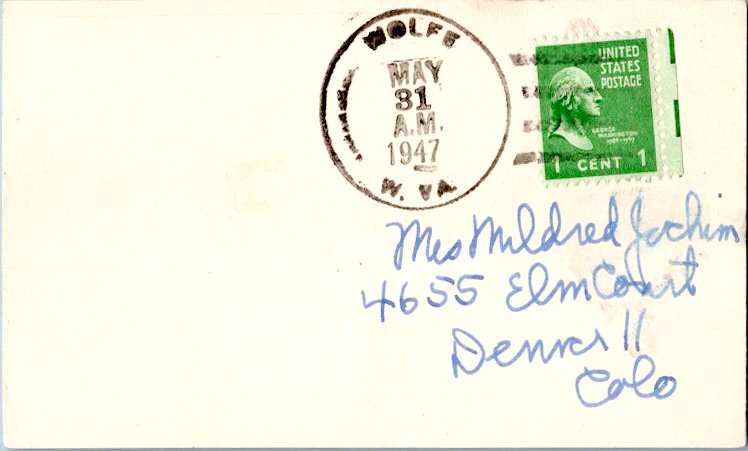 WOLFE
MAY
31
A.M.
1947
W. VA.
UNITED
STATES
POSTAGE
GEORGE
WASHINGTON
1789-1797
1 CENT 1
Mrs Mildred Jochim
4655 Elm Court
Denver 11
Colo